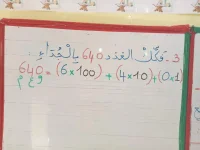 3- فكّك العدد 640 بالجداء:
640 = (6×100) + (4×10)+(0×1)
م ع و